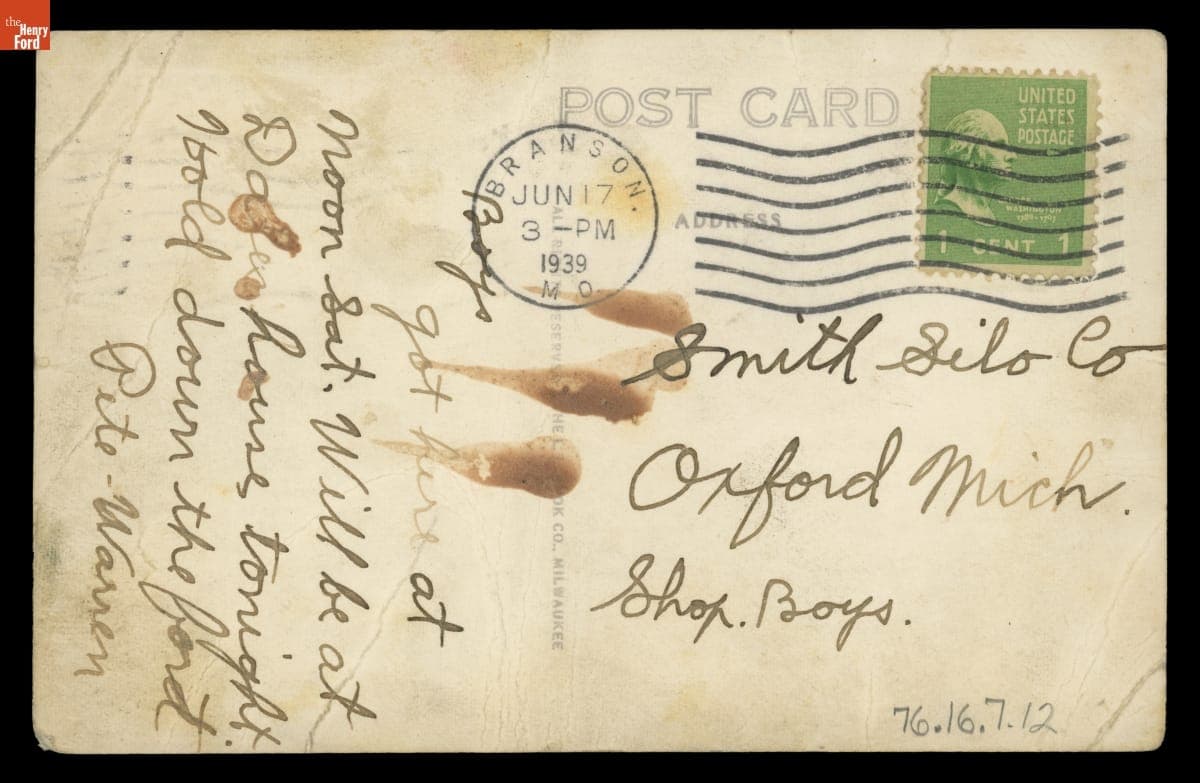 the
Henry
Ford
POST CARD
ADDRESS
BRANSON.
JUN 17
3 -PM
1939
MO
UNITED
STATES
POSTAGE
WASHINGTON
1789-1797
1 CENT 1
Smith Silo Co
Oxford Mich.
Shop. Boys.
Boys
got here at
Noon Sat. Will be at
house tonight.
Hold down the ford
Pete-Warren
CO., MILWAUKEE
76.16.7.12